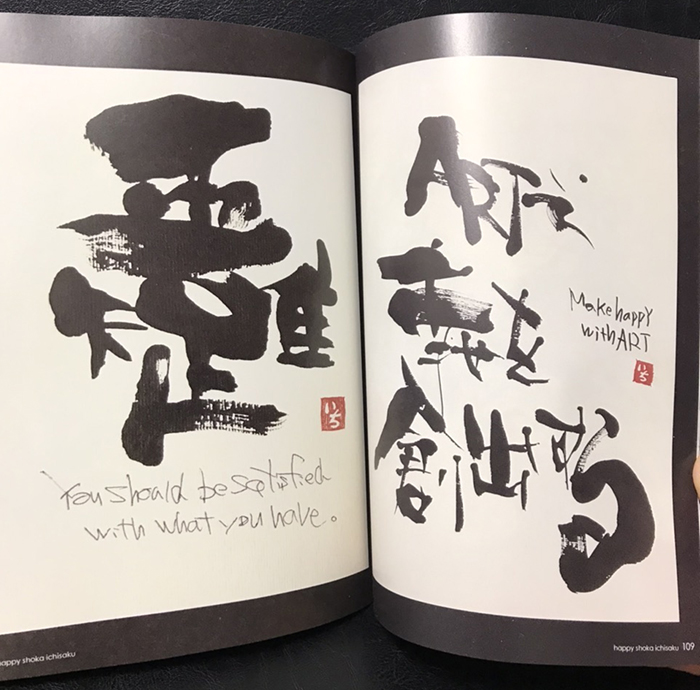 吾唯足知
いち
You should be satisfied
with what you have。
happy shoka ichisaku
ARTで
幸せを
創出する
Make happy
with ART
いち
happy shoka ichisaku 109